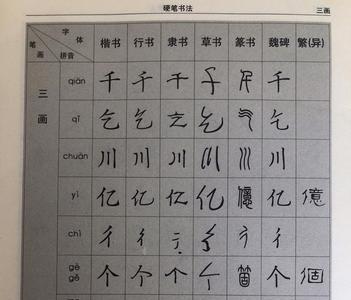 硬笔书法 三画
字体 笔画 拼音 楷书 行书 隶书 草书 篆书 魏碑 繁(异)
三画
qiān 千 千 千 千 千 千
qǐ 乞 乞 乞 乞 乞 乞
chuān 川 川 川 川 川 川
yì 亿 亿 亿 亿 億 亿 億
chì 彳 彳 彳 彳 彳 彳
gè gě 个 个 个 个 箇 个 個